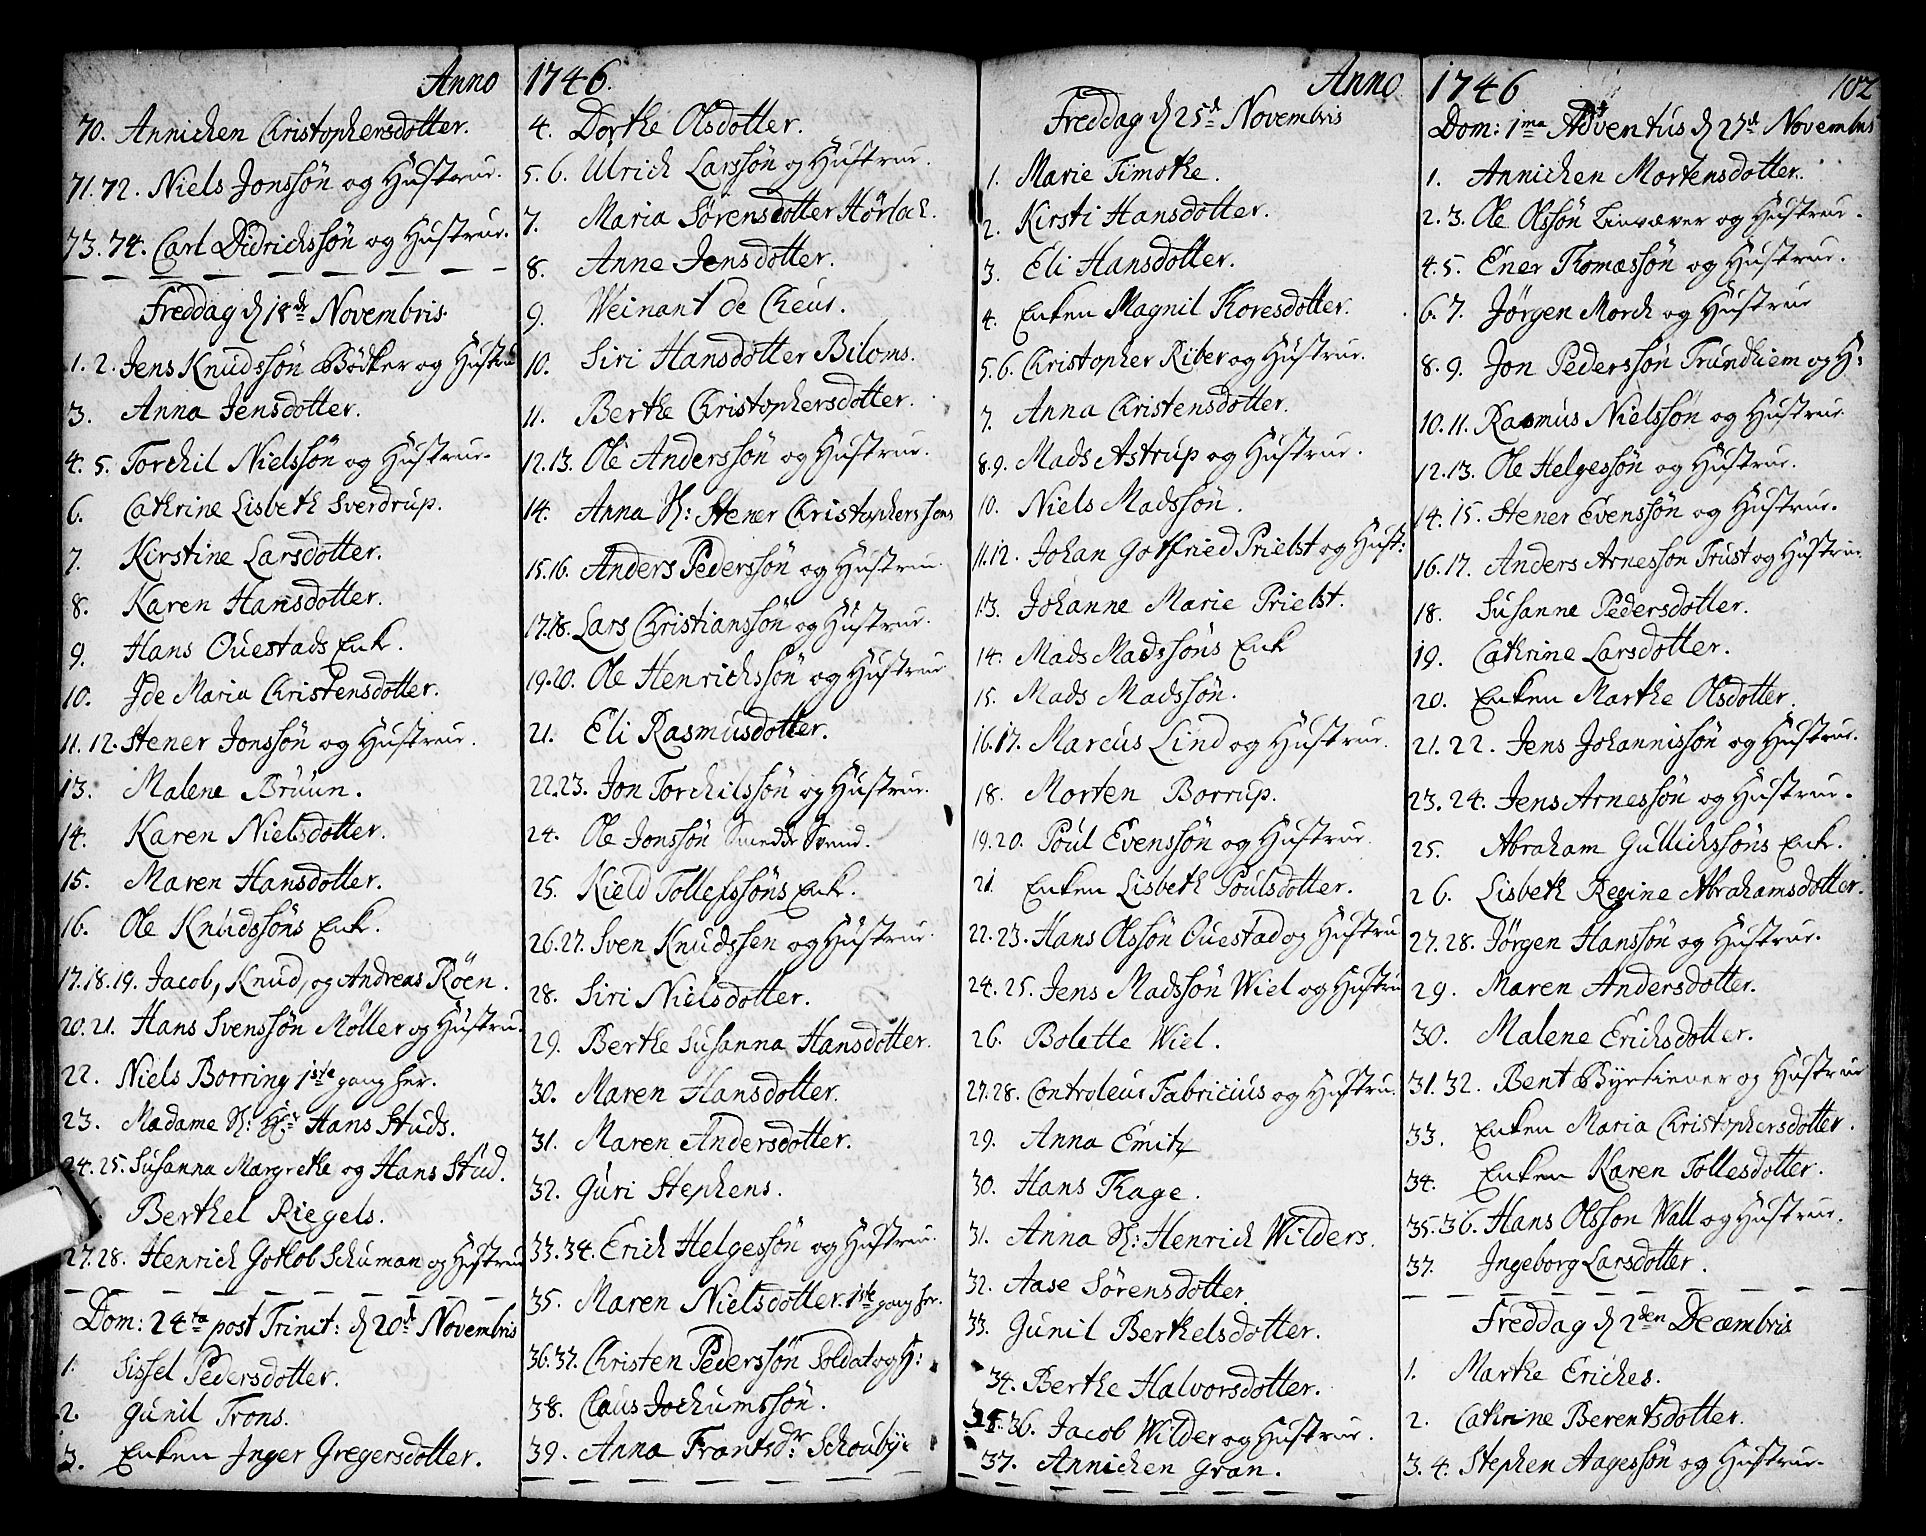 Anno 1746.
70. Annichen Christophersdotter.
71. 72. Niels Jonssøn og Hustrue.
73. 74. Carl Didrichssøn og Hustrue.
Freddag d 18de Novembris.
1. 2. Jens Knudssøn Bødker og Hustru
3. Anna Jensdotter.
4. 5. Torchil Nielssøn og Hustrue.
6. Cathrine Lisbeth Sverdrup.
7. Kirstine Larsdotter.
8. Karen Hansdotter.
9. Hans Ouestads Enk.
10. Ide Maria Christensdotter.
11. 12. Stener Jonssøn og Hustrue.
13. Malene Bruun.
14. Karen Nielsdotter.
15. Maren Hansdotter.
16. Ole Knudssøns Enk.
17. 18. 19. Jacob, Knud, og Andreas Röen.
20. 21. Hans Svenssøn Møller og Hustru.
22. Niels Borring 1ste gang her.
23. Madame Sl: Hr Hans Studs.
24. 25. Susanna Margrethe og Hans Stud.
Berthel Riegels.
27. 28. Henrich Gotlob Schuman og Hustrue
Dom: 24ta post Trinit: d 20de Novembris
1. Sissel Pedersdotter.
2. Gunil Trons.
3. Enken Inger Gregersdotter.
4. Dorthe Olsdotter.
5. 6. Ulrich Larssøn og Hustrue.
7. Maria Sørensdotter Hørloch.
8. Anne Jensdotter.
9. Weinant de Cheur.
10. Siri Hansdotter Biloms.
11. Berthe Christophersdotter.
12. 13. Ole Anderssøn og Hustrue.
14. Anna Sl: Stener Christopherssøns
15. 16. Anders Pederssøn og Hustrue.
17. 18. Lars Christianssøn og Hustrue.
19. 20. Ole Henrichssøn og Hustrue
21. Eli Rasmusdotter.
22. 23. Jon Torchilssøn og Hustrue.
24. Ole Jonssøn Smedde Svend.
25. Kield Tollefssøns Enk.
26. 27. Sven Knudssen og Hustrue.
28. Siri Nielsdotter.
29. Berthe Susanna Hansdotter.
30. Maren Hansdotter.
31. Maren Andersdotter.
32. Guri Stephens.
33. 34. Erich Helgessøn og Hustrue.
35. Maren Nielsdotter. 1ste gang her.
36. 37. Christen Pederssøn Soldat og H:
38. Claus Jochumssøn.
39. Anna Frantsdr. Schoubye
Anno 1746
102
Freddag d 25de Novembris
1. Marie Timothe.
2. Kirsti Hansdotter.
3. Eli Hansdotter.
4. Enken Magnil Thoresdotter.
5. 6. Christopher Riber og Hustrue.
7. Anna Christensdotter.
8. 9. Mads Astrup og Hustrue.
10. Niels Madssøn.
11. 12. Johan Gotfried Prielst og Hust:
13. Johanne Marie Prielst.
14. Mads Madssøns Enk
15. Mads Madssøn.
16. 17. Marcus Lind og Hustrue.
18. Morten Borrup.
19. 20. Poul Evenssøn og Hustrue.
21. Enken Lisbeth Poulsdotter.
22. 23. Hans Olssøn Ouestad og Hustru
24. 25. Jens Madssøn Wiel og Hustru
26. Bolette Wiel.
27. 28. Controleur Fabricius og Hustru.
29. Anna Emitz
30. Hans Thage.
31. Anna Sl: Henrich Wilders.
32. Aase Sørensdotter.
33. Gunil Berthelsdotter.
34. Berthe Halvorsdotter.
35. 36. Jacob Wilder og Hustrue.
37. Annichen Gran.
Dom: 1ma Adventus d 27de Novembris
1. Annichen Mortensdotter.
2. 3. Ole Olssøn Linvæver og Hustrue.
4. 5. Ener Thomæssøn og Hustrue.
6. 7. Jørgen Morch og Hustrue
8. 9. Jon Pederssøn Trundhiem og H:
10. 11. Rasmus Nielssøn og Hustrue.
12. 13. Ole Helgessøn og Hustrue.
14. 15. Stener Evenssøn og Hustrue.
16. 17. Anders Arnessøn Trust og Hustrue.
18. Susanne Pedersdotter.
19. Cathrine Larsdotter.
20. Enken Marthe Olsdotter.
21. 22. Jens Johannissøn og Hustrue.
23. 24. Jens Arnessøn og Hustrue.
25. Abraham Gullichssøns Enk.
26. Lisbeth Regine Abrahamsdotter.
27. 28. Jørgen Hanssøn og Hustrue.
29. Maren Andersdotter.
30. Malene Erichsdotter.
31. 32. Bent Byetiener og Hustrue
33. Enken Maria Christophersdotter.
34. Enken Karen Tollesdotter.
35. 36. Hans Olsson Wall og Hustrue.
37. Ingeborg Larsdotter.
Freddag d 2den Decæmbris
1. Marthe Eriches.
2. Cathrine Berentsdotter.
3. 4. Stephen Aagessøn og Hustrue.